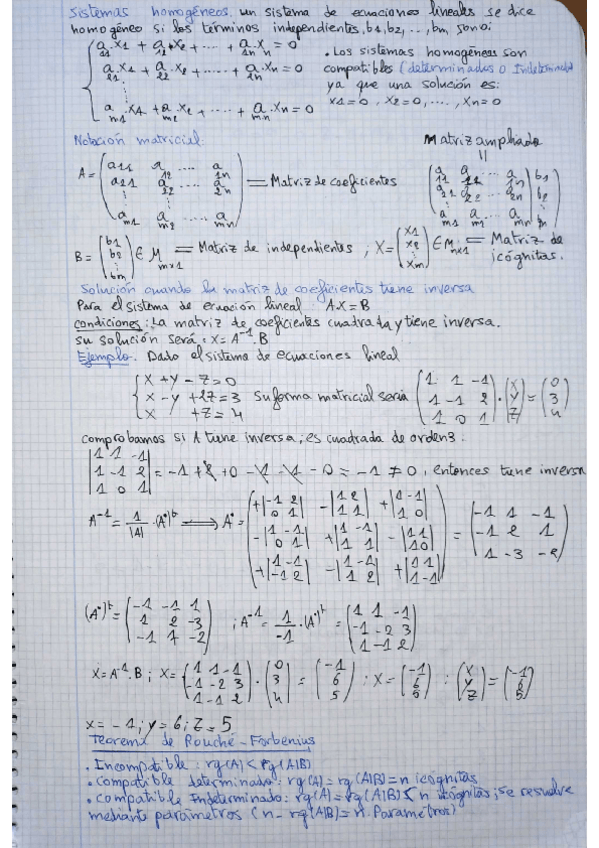 Sistemas homogéneos. un sistema de ecuaciones lineales se dice
homogéneo si los términos independientes, b1, b2, ..., bm, son 0:
a11·x1 + a12·x2 + .... + a1n·xn = 0
a21·x1 + a22·x2 + ..... + a2n·xn = 0
⋮
am1·x1 + am2·x2 + ..... + amn·xn = 0
• Los sistemas homogéneos son
compatibles (determinados o Indeterminado
ya que una solución es:
x1=0, x2=0, ...., xn=0
Notación matricial:
Matriz ampliada
A = (a11 a12 .... a1n
a21 a22 .... a2n
⋮
am1 am2 .... amn) = Matriz de coeficientes
(a11 a12 ... a1n | b1
a21 a22 ... a2n | b2
⋮
am1 am2 ... amn | bm)
B = (b1 b2 ⋮ bm) ∈ M mx1 = Matriz de independientes ; X = (x1 x2 ⋮ xm) ∈ M nx1 = Matriz de
icógnitas.
Solución cuando la matriz de coeficientes tiene inversa
Para el sistema de ecuación lineal: A.X = B
condiciones: La matriz de coeficientes cuadrada y tiene inversa.
su solución será: X = A⁻¹.B
Ejemplo. Dado el sistema de ecuaciones lineal
x + y - z = 0
x - y + 2z = 3
x + z = 4
su forma matricial seria (1 1 -1
1 -1 2
1 0 1) · (x y z) = (0 3 4)
comprobamos si A tiene inversa; es cuadrada de orden 3:
|1 1 -1|
|1 -1 2| = -1 + 2 + 0 - 1 - 1 - 0 = -1 ≠ 0, entonces tiene inversa
|1 0 1|
A⁻¹ = 1/|A| · (A*)ᵗ ⟹ A* = (+|-1 2 / 0 1| -|1 2 / 1 1| +|1 -1 / 1 0|
-|1 -1 / 0 1| +|1 -1 / 1 1| -|1 1 / 1 0|
+|1 -1 / -1 2| -|1 -1 / 1 2| +|1 1 / 1 -1|) = (-1 1 -1
-1 2 1
1 -3 -2)
(A*)ᵗ = (-1 -1 1
1 2 -3
-1 1 -2) ; A⁻¹ = 1/-1 · (A*)ᵗ = (1 1 -1
-1 -2 3
1 -1 2)
X = A⁻¹.B ; X = (1 1 -1
-1 -2 3
1 -1 2) · (0 3 4) = (-1 6 5) ; X = (-1 6 5) : (x y z) = (-1 6 5)
x = -1 ; y = 6 ; z = 5
Teorema de Rouché-Forbenius
• Incompatible: rg(A) < rg(A|B)
• Compatible determinado: rg(A) = rg(A|B) = n icógnitas
• Compatible Indeterminado: rg(A) = rg(A|B) < n icógnitas; se resuelve
mediante parámetros (n - rg(A|B) = n. Parametros)